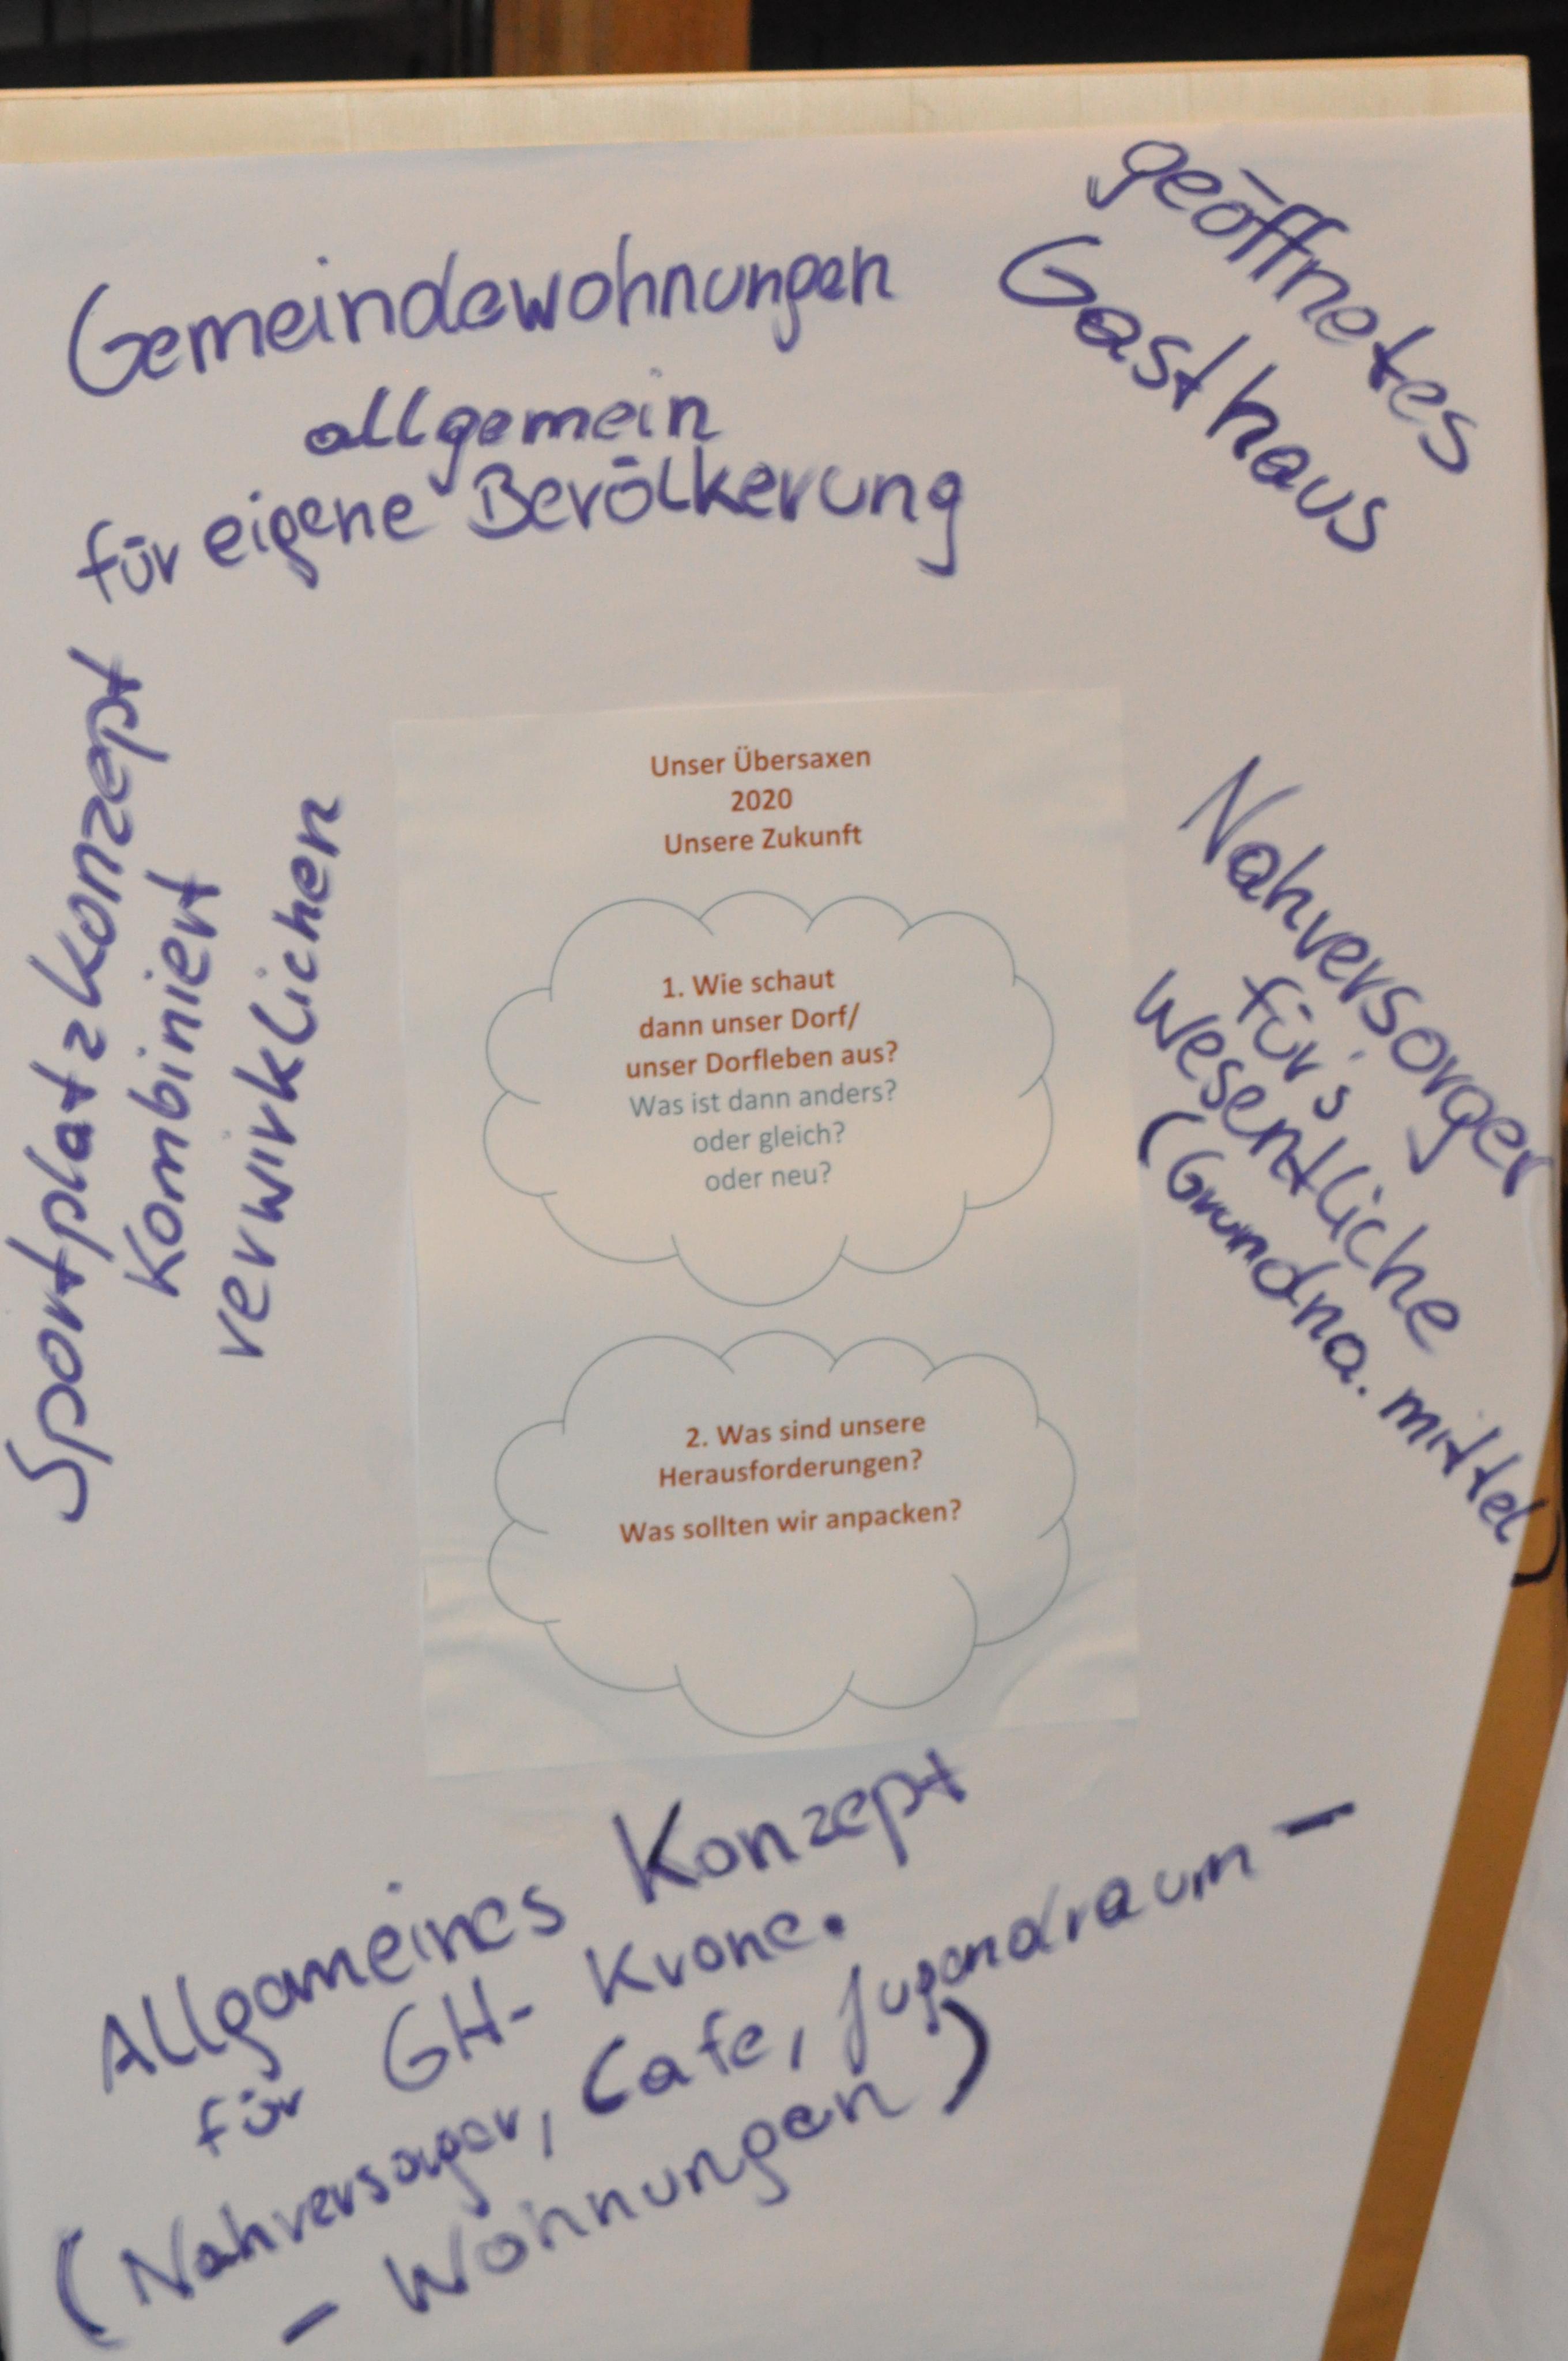 Gemeindewohnungen
allgemein
für eigene Bevölkerung
geöffnetes
Gasthaus
Sportplatzkonzept
Kombiniert
verwirklichen
Unser Übersaxen
2020
Unsere Zukunft
1. Wie schaut
dann unser Dorf/
unser Dorfleben aus?
Was ist dann anders?
oder gleich?
oder neu?
2. Was sind unsere
Herausforderungen?
Was sollten wir anpacken?
Nahversorger
für's
Wesentliche
(Grundna. mittel)
Allgemeines Konzept
für GH- Krone.
(Nahversorger, Cafe, Jugendraum -
- Wohnungen)